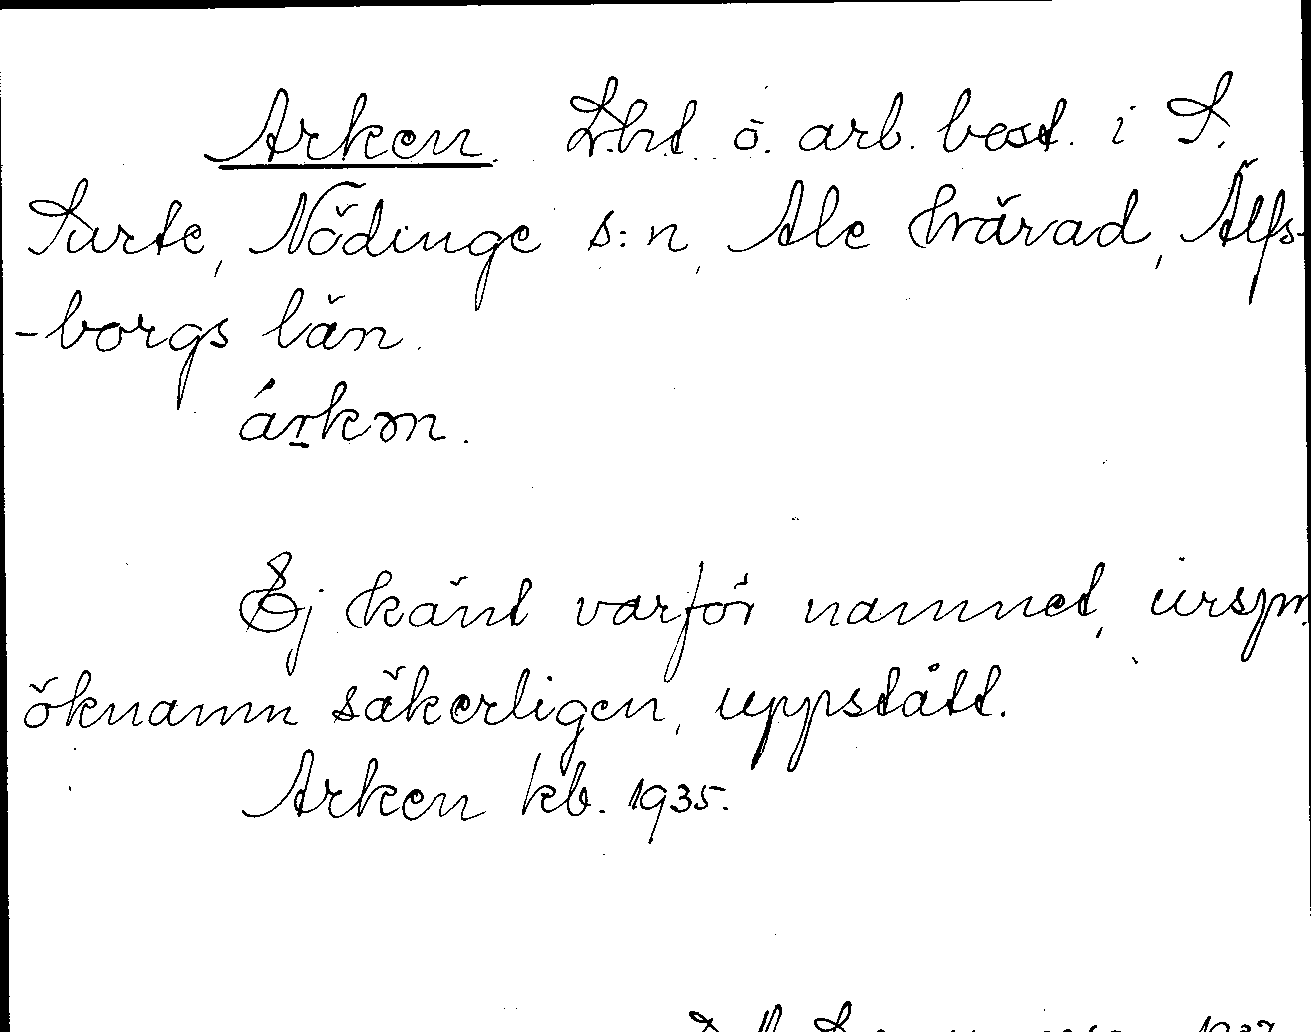 Arken. Lht. o. arb. best. i S.
Surte, Nödinge s:n, Ale härad, Älfs-
-borgs län.
árkən.
Ej känt varför namnet, urspr.
öknamn säkerligen, uppstått.
Arken kb. 1935.
1937